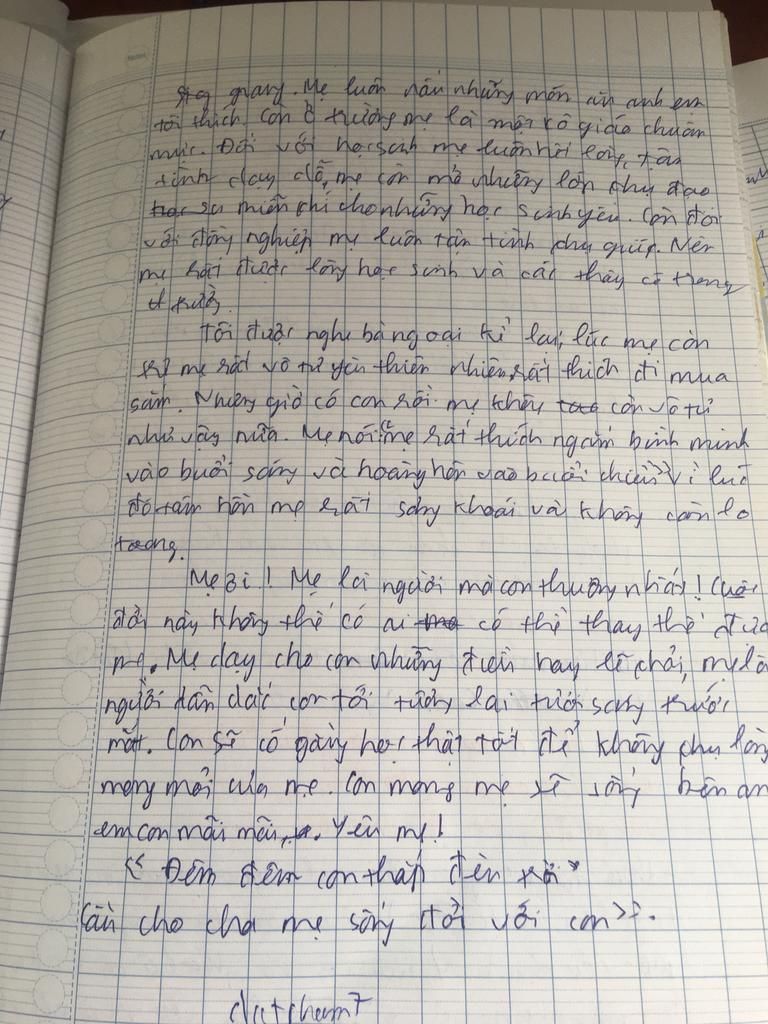 gàng. Mẹ luôn nấu những món ăn anh em
tôi thích. Còn ở trường mẹ là một cô giáo chuẩn
mực. Đối với học sinh mẹ luôn hết lòng, tận
tình dạy dỗ, mẹ còn mở những lớp phụ đạo
miễn phí cho những học sinh yếu. Còn đối
với đồng nghiệp mẹ luôn tận tình phụ giúp. Nên
mẹ rất được lòng học sinh và các thầy cô trong
trường.
Tôi được nghe bà ngoại kể lại, lúc mẹ còn
trẻ mẹ rất vô tư yêu thiên nhiên, rất thích đi mua
sắm. Nhưng giờ có con rồi mẹ không còn vô tư
như vậy nữa. Mẹ nói: "mẹ rất thích ngắm bình minh
vào buổi sáng và hoàng hôn vào buổi chiều" vì lúc
đó tâm hồn mẹ rất sảng khoái và không còn lo
Mẹ ơi! Mẹ là người mà con thương nhất! Cuộc
đời này không thể có ai có thể thay thế được
mẹ. Mẹ dạy cho con những điều hay lẽ phải, mẹ là
người dẫn dắt con tới tương lai tươi sáng trước
mắt. Con sẽ cố gắng học thật tốt để không phụ lòng
mong mỏi của mẹ. Con mong mẹ sẽ sống bên anh
em con mãi mãi. Yêu mẹ!
"Đêm đêm con thắp đèn trời
Cầu cho cha mẹ sống đời với con".